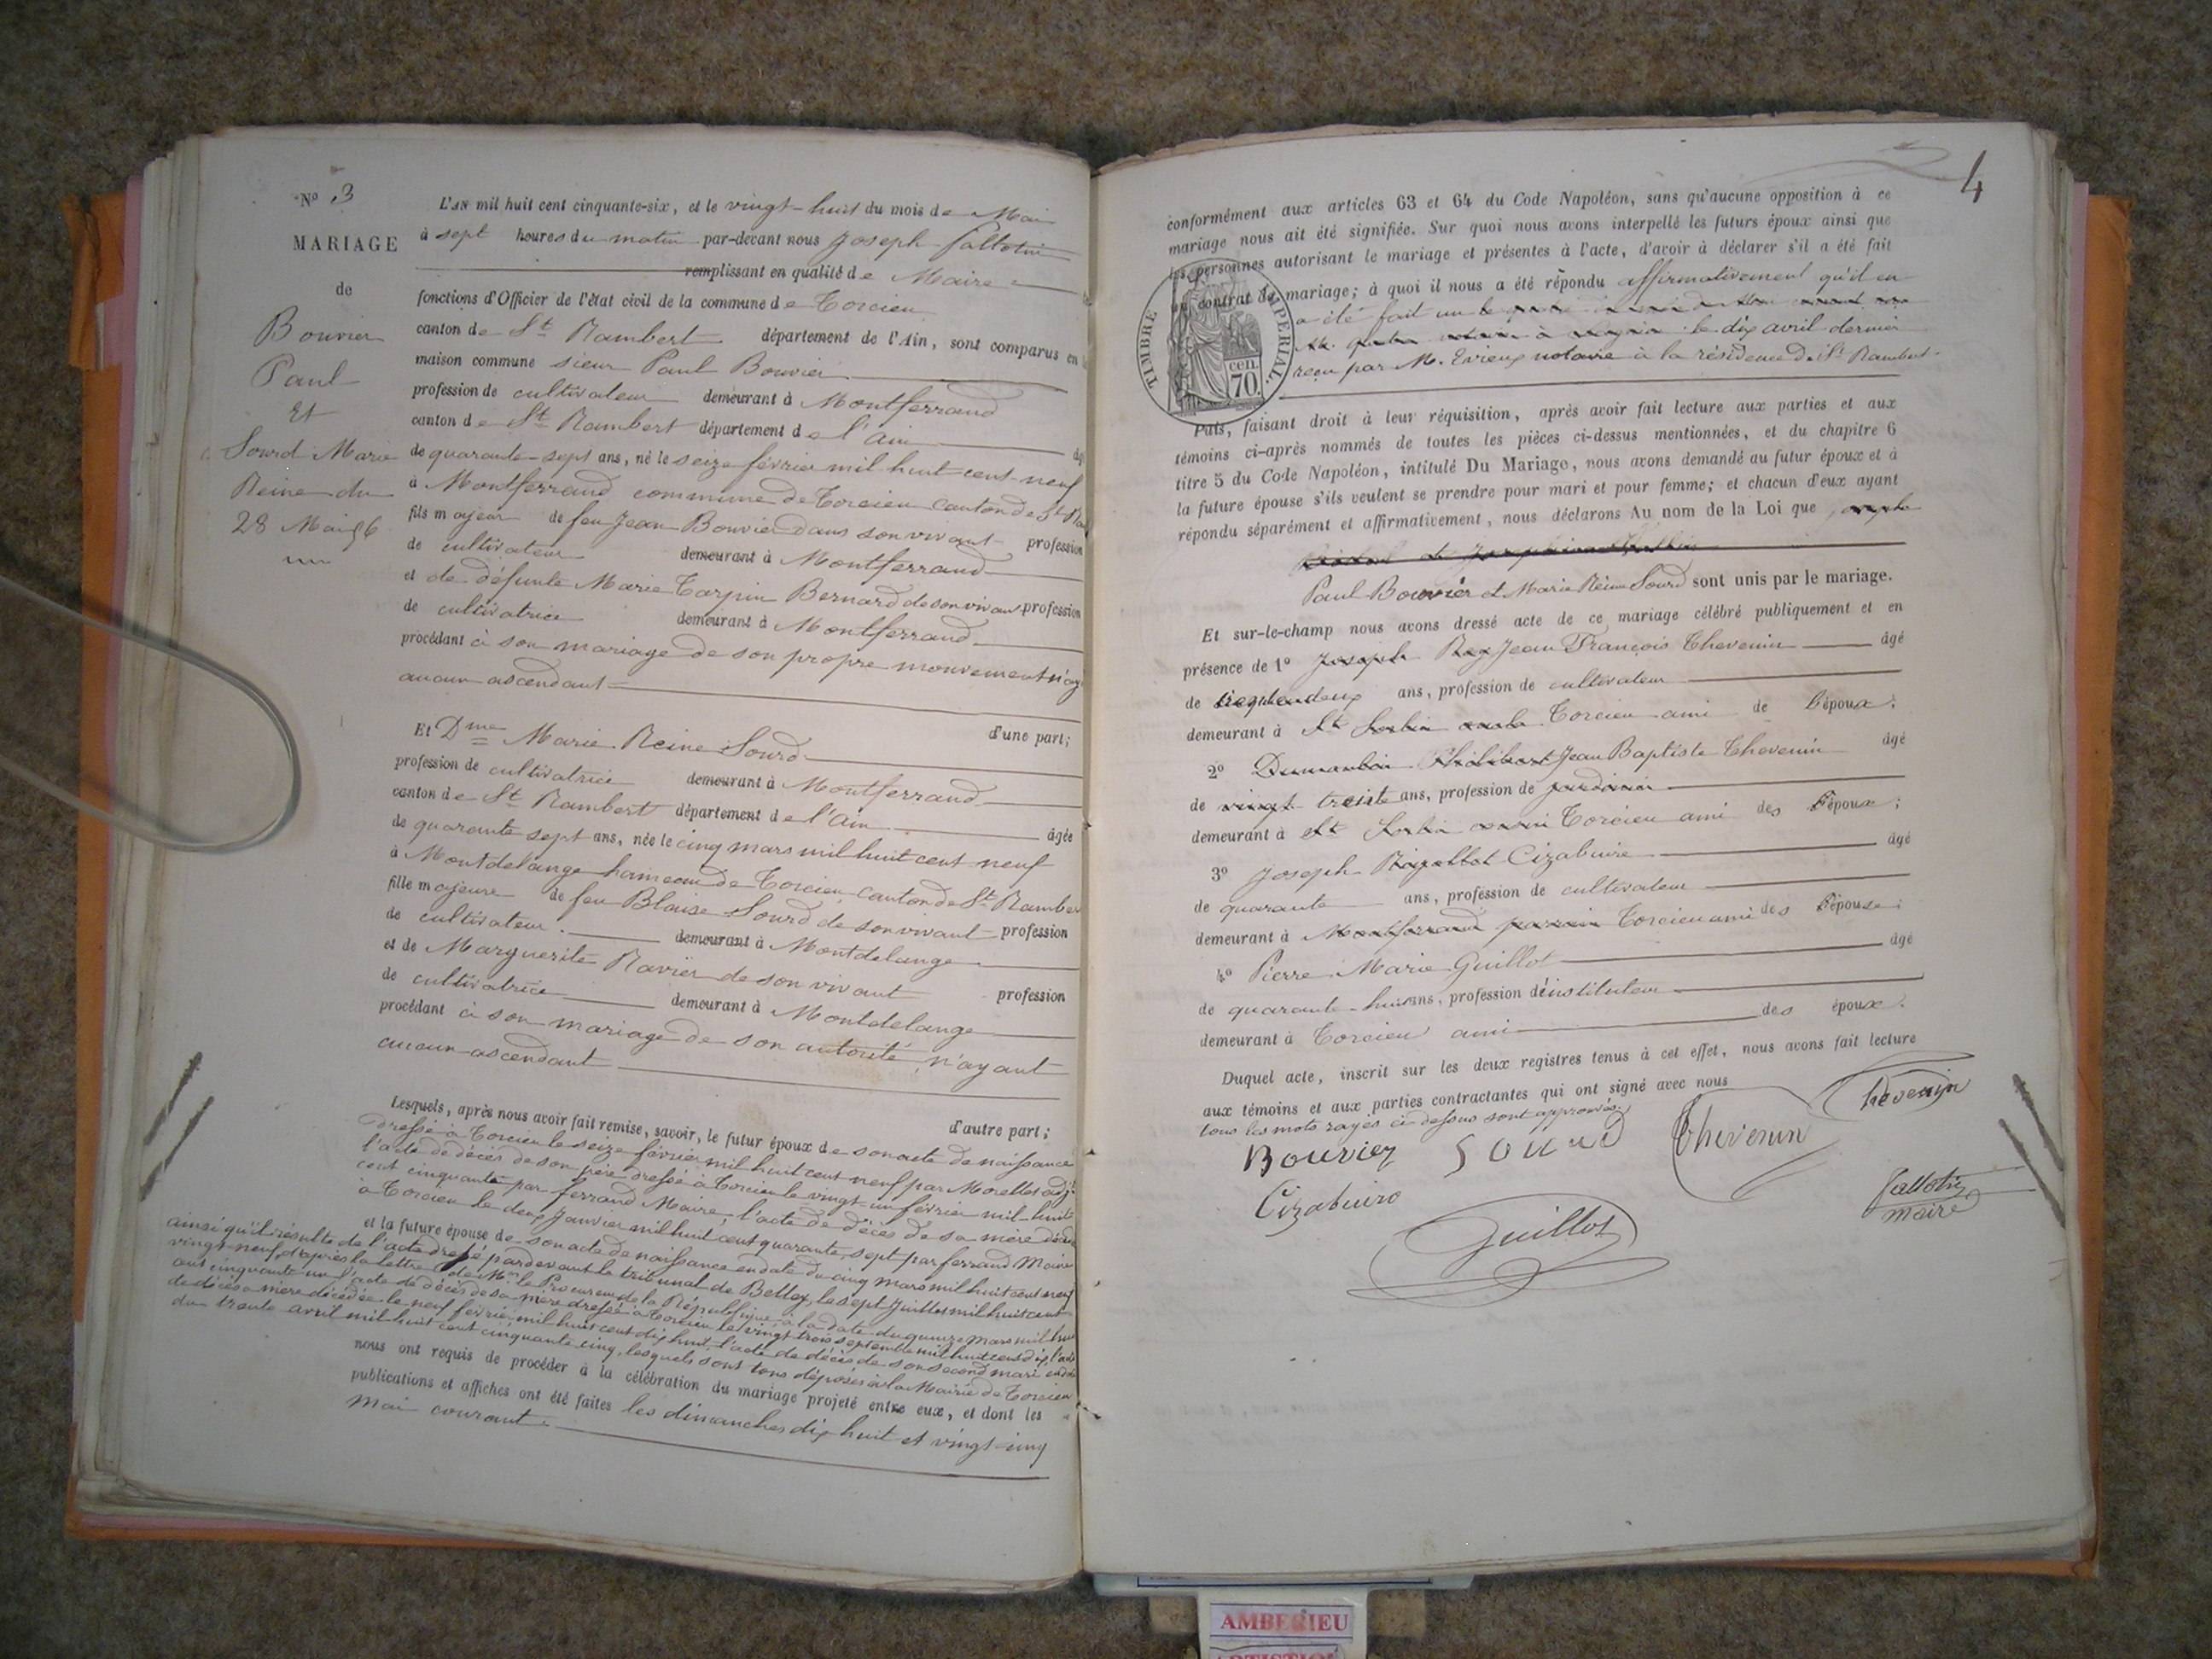 N° 3
MARIAGE
de
Bouvier
Paul
Et
Sourd Marie
Reine du
28 Mai 56
L'AN mil huit cent cinquante-six, et le vingt-huit du mois de Mai
à sept heures du matin par-devant nous Joseph
remplissant en qualité de Maire
fonctions d'Officier de l'état civil de la commune de Torcieu
canton de St Rambert département de l'Ain, sont comparus en
maison commune sieur Paul Bouvier
profession de cultivateur demeurant à Montferrand
canton de St Rambert département de l'Ain
de quarante-sept ans, né le seize février mil huit cent neuf
à Montferrand commune de Torcieu canton de St
fils majeur de feu Jean Bouvier dans son vivant profession
de cultivateur demeurant à Montferrand
et de défunte Marie Tarpin Bernard de son vivant profession
de cultivatrice demeurant à Montferrand
procédant à son mariage de son propre mouvement
aucun ascendant
d'une part;
Et Dme Marie Reine Sourd
profession de cultivatrice demeurant à Montferrand
canton de St Rambert département de l'Ain âgée
de quarante sept ans, née le cinq mars mil huit cent neuf
à Montdelange hameau de Torcieu canton de St Rambert
fille majeure de feu Blaise Sourd de son vivant profession
de cultivateur. demeurant à Montdelange
et de Marguerite Ravier de son vivant profession
de cultivatrice demeurant à Montdelange
procédant à son mariage de son autorité, n'ayant
aucun ascendant
d'autre part;
Lesquels, après nous avoir fait remise, savoir, le futur époux de son acte de naissance
dressé à Torcieu le seize février mil huit cent neuf par Morellet adj.
l'acte de décès de son père dressé à Torcieu le vingt-un février mil-huit
cent cinquante par ferrand Maire, l'acte de décès de sa mère
à Torcieu le deux Janvier mil huit cent quarante sept par ferrand Maire
et la future épouse de son acte de naissance en date du cinq mars mil huit cent neuf
ainsi qu'il résulte de l'acte dressé pardevant le tribunal de Belley, le sept Juillet mil huit cent
vingt-neuf, d'après la lettre de Mr le Procureur de la République, à la date du quinze mars mil huit
cent cinquante un l'acte de décès de sa mère dressé à Torcieu le vingt trois septembre mil huit cent dix, l'acte
de décès mère décédée le neuf février mil huit cent dix huit, l'acte de décès de son second mari
du trente avril mil huit cent cinquante cinq, lesquels sont tous déposés à la Mairie de Torcieu
nous ont requis de procéder à la célébration du mariage projeté entre eux, et dont les
publications et affiches ont été faites les dimanches dix huit et vingt-cinq
Mai courant
4
conformément aux articles 63 et 64 du Code Napoléon, sans qu'aucune opposition à ce
mariage nous ait été signifiée. Sur quoi nous avons interpellé les futurs époux ainsi que
les personnes autorisant le mariage et présentes à l'acte, d'avoir à déclarer s'il a été fait
un contrat de mariage; à quoi il nous a été répondu affirmativement qu'il en
TIMBRE IMPERIAL.
cen. 70.
a été fait un le
le dix avril dernier
reçu par M. Evrieux notaire à la résidence de St Rambert.
Puis, faisant droit à leur réquisition, après avoir fait lecture aux parties et aux
témoins ci-après nommés de toutes les pièces ci-dessus mentionnées, et du chapitre 6
titre 5 du Code Napoléon, intitulé Du Mariage, nous avons demandé au futur époux et à
la future épouse s'ils veulent se prendre pour mari et pour femme; et chacun d'eux ayant
répondu séparément et affirmativement, nous déclarons Au nom de la Loi que
Paul Bouvier et Marie Reine Sourd sont unis par le mariage.
Et sur-le-champ nous avons dressé acte de ce mariage célébré publiquement et en
présence de 1° Joseph Rey Jean François Thevenin âgé
de trente deux ans, profession de cultivateur
demeurant à St Sorlin Torcieu ami de l'époux.
2° Jean Baptiste Thevenin âgé
de vingt trente ans, profession de jardinier
demeurant à St Sorlin Torcieu ami des époux;
3° Joseph Cizabuire âgé
de quarante ans, profession de cultivateur
demeurant à Montferrand Torcieu ami des l'épouse;
4° Pierre Marie Guillot âgé
de quarante-huit ans, profession d'instituteur
demeurant à Torcieu ami des époux.
Duquel acte, inscrit sur les deux registres tenus à cet effet, nous avons fait lecture
aux témoins et aux parties contractantes qui ont signé avec nous
tous les mots rayés ci-dessus sont approuvés.
Thevenin
Bouvier Sourd Thevenin
Cizabuire
maire
Guillot
AMBERIEU